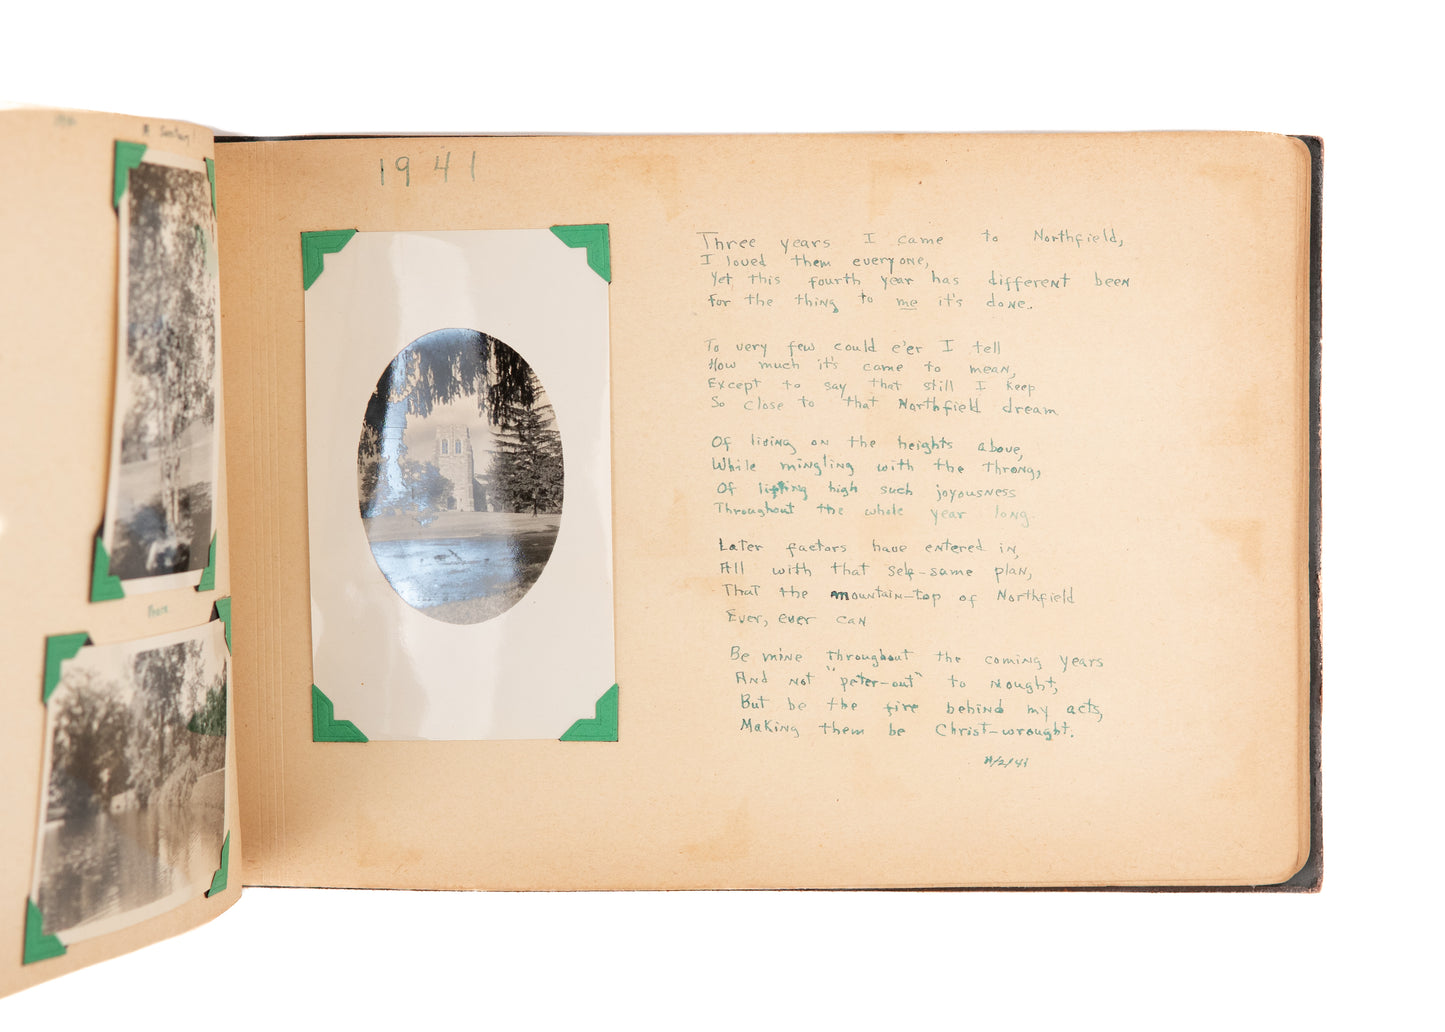 Peace
1941
Three years I came to Northfield,
I loved them everyone,
Yet this fourth year has different been
For the thing to me it's done.
To very few could e'er I tell
How much it's came to mean,
Except to say that still I keep
So close to that Northfield dream
Of living on the heights above,
While mingling with the throng,
Of lifting high such joyousness
Throughout the whole year long.
Later factors have entered in,
All with that self-same plan,
That the mountain-top of Northfield
Ever, ever can
Be mine throughout the coming years
And not "peter-out" to nought,
But be the fire behind my acts,
Making them be Christ-wrought.